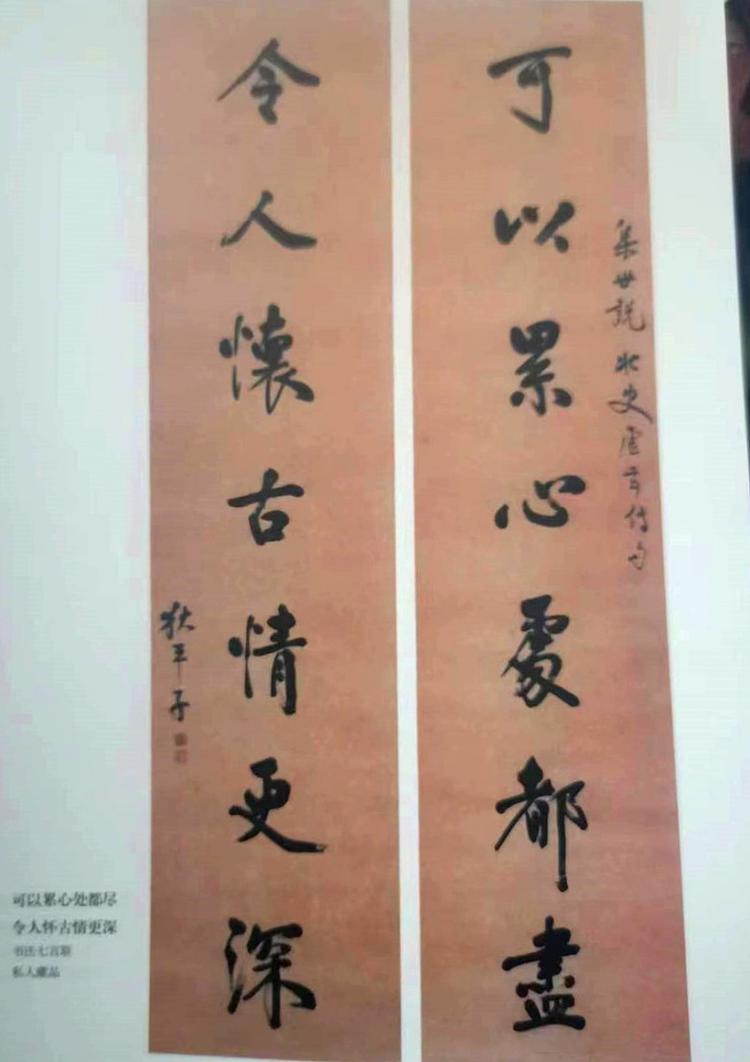 集世说北史卢玄传句
可以累心處都盡
令人懷古情更深
狄平子
可以累心处都尽
令人怀古情更深
书法七言联
私人藏品